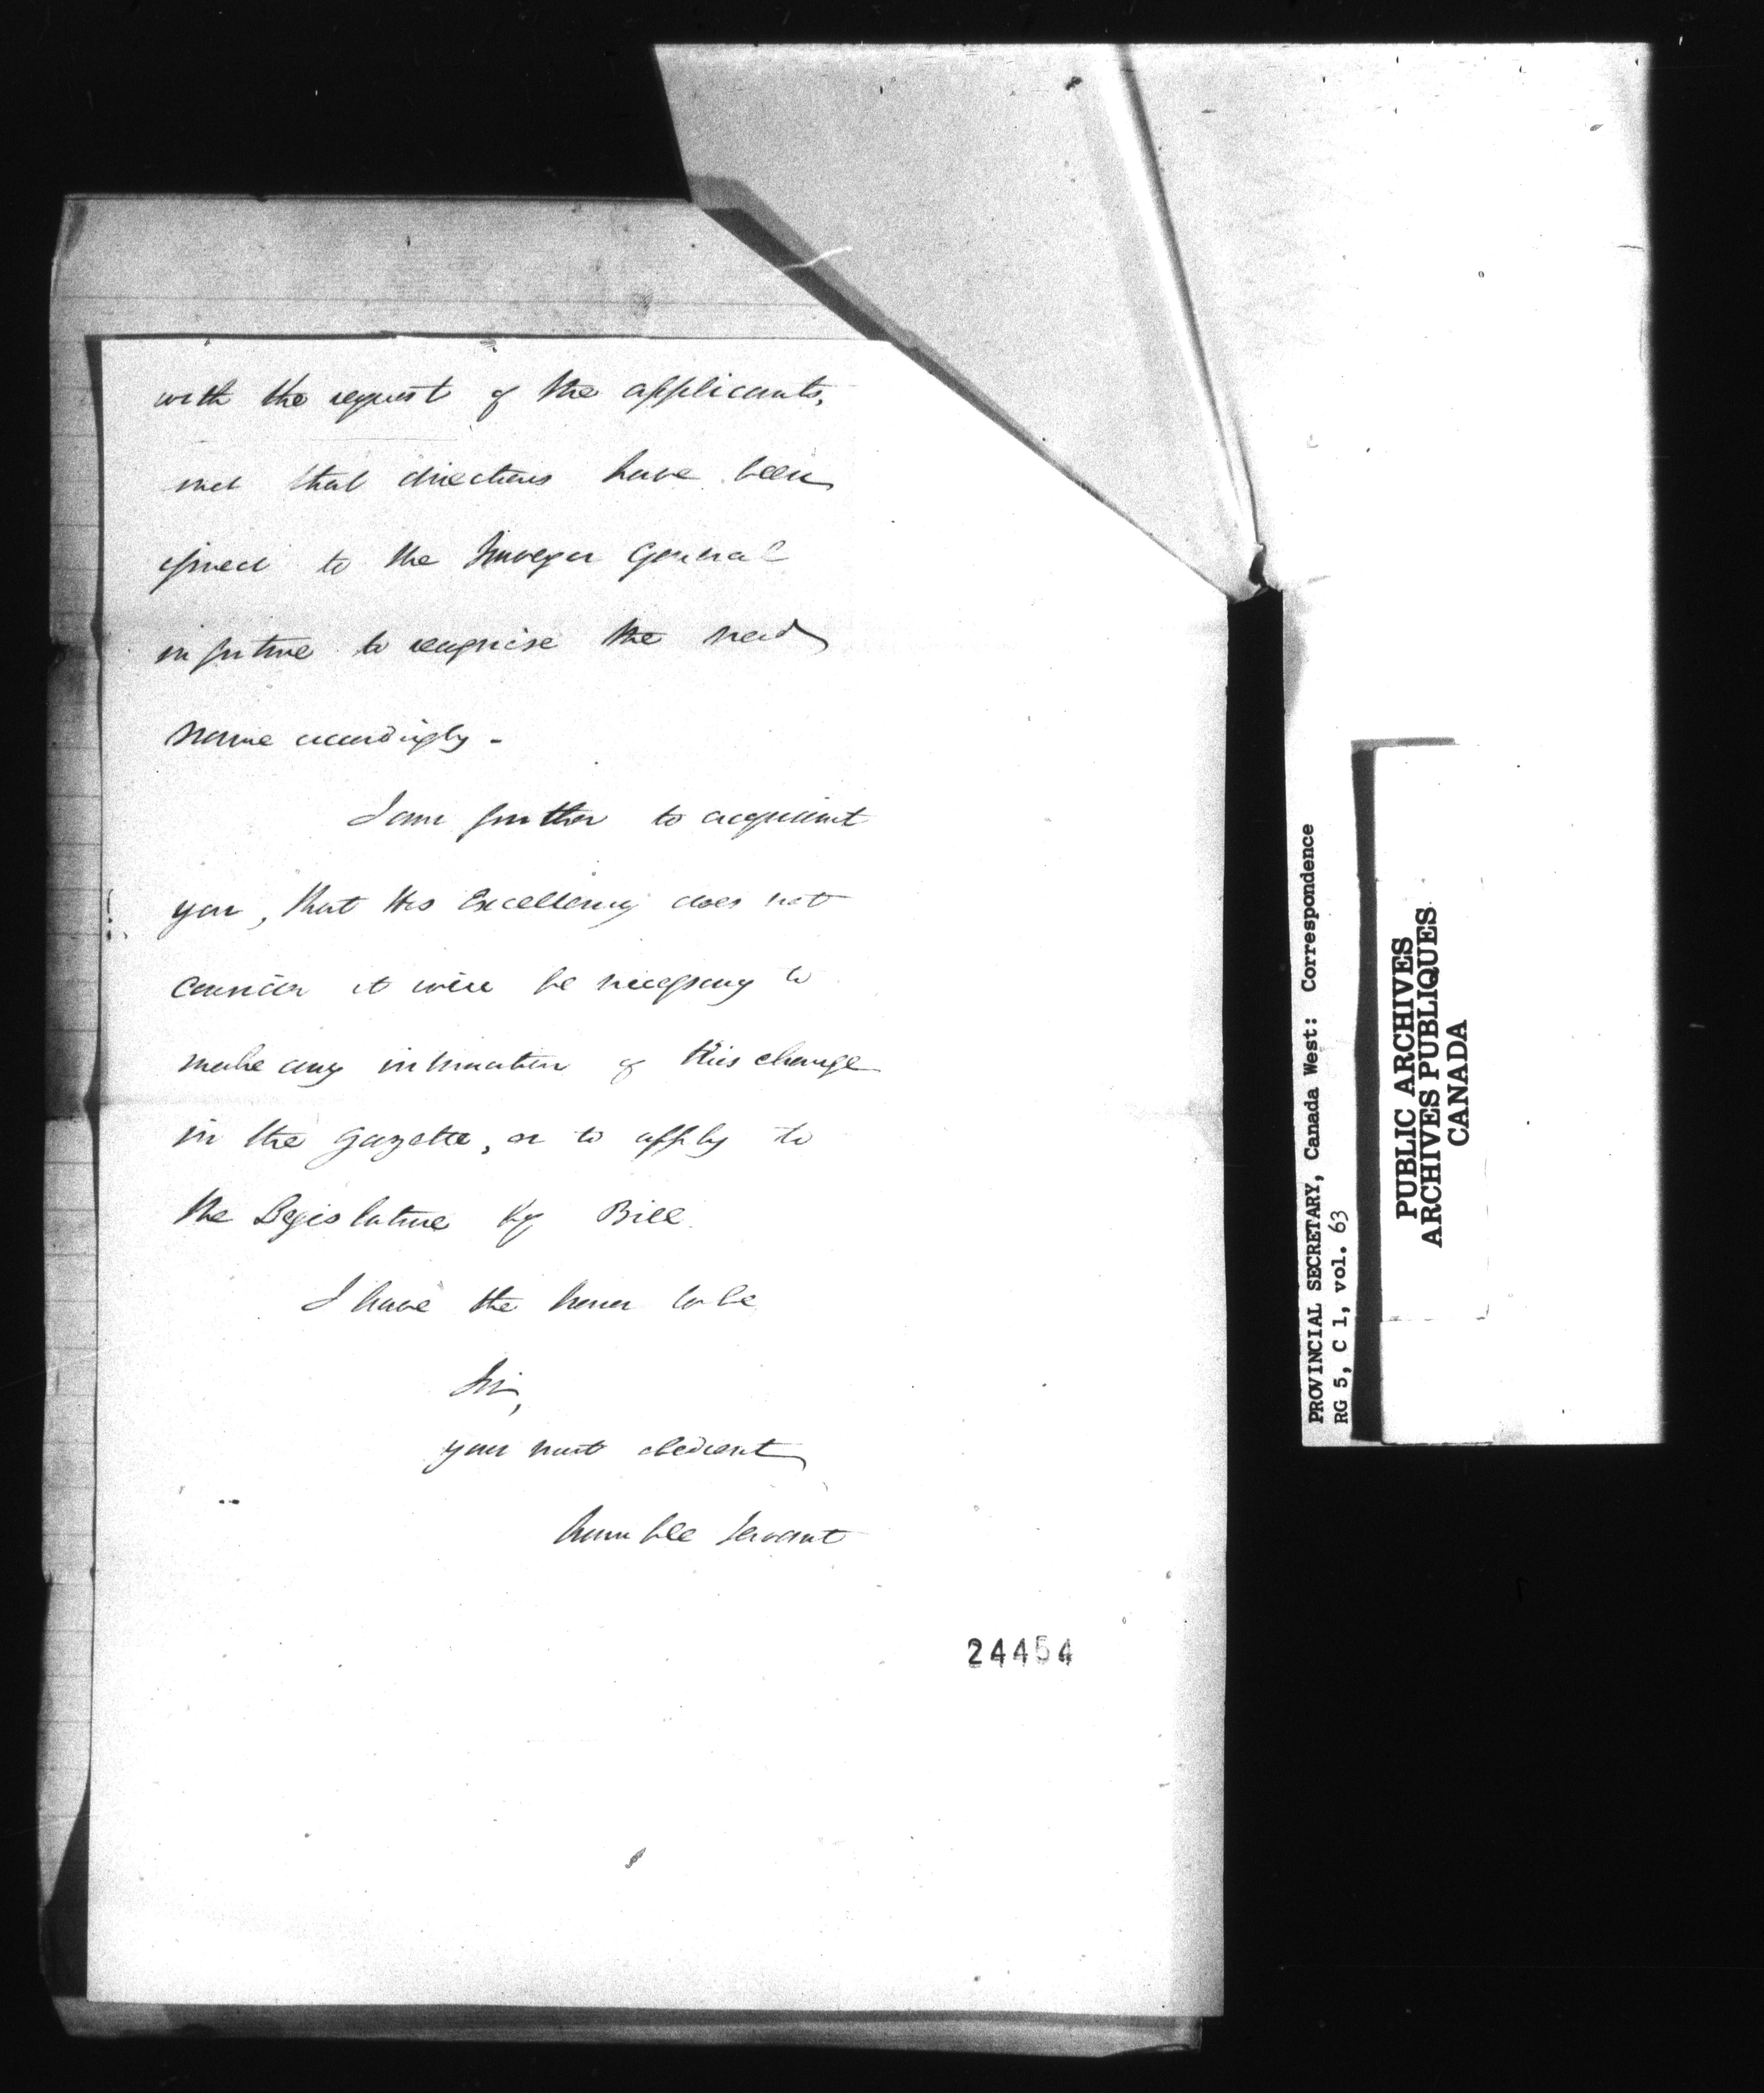 with the request of the applicants,
and that directions have been
given to the Surveyor General
in future to recognise the new
name accordingly -
I am further to acquaint
you, that His Excellency does not
consider it will be necessary to
make any intimation of this change
in the Gazette, or to apply to
the Legislature by Bill
I have the honor to be
Sir,
your most obedient
humble servant
24454
PROVINCIAL SECRETARY, Canada West: Correspondence
RG 5, C 1, vol. 63
PUBLIC ARCHIVES
ARCHIVES PUBLIQUES
CANADA